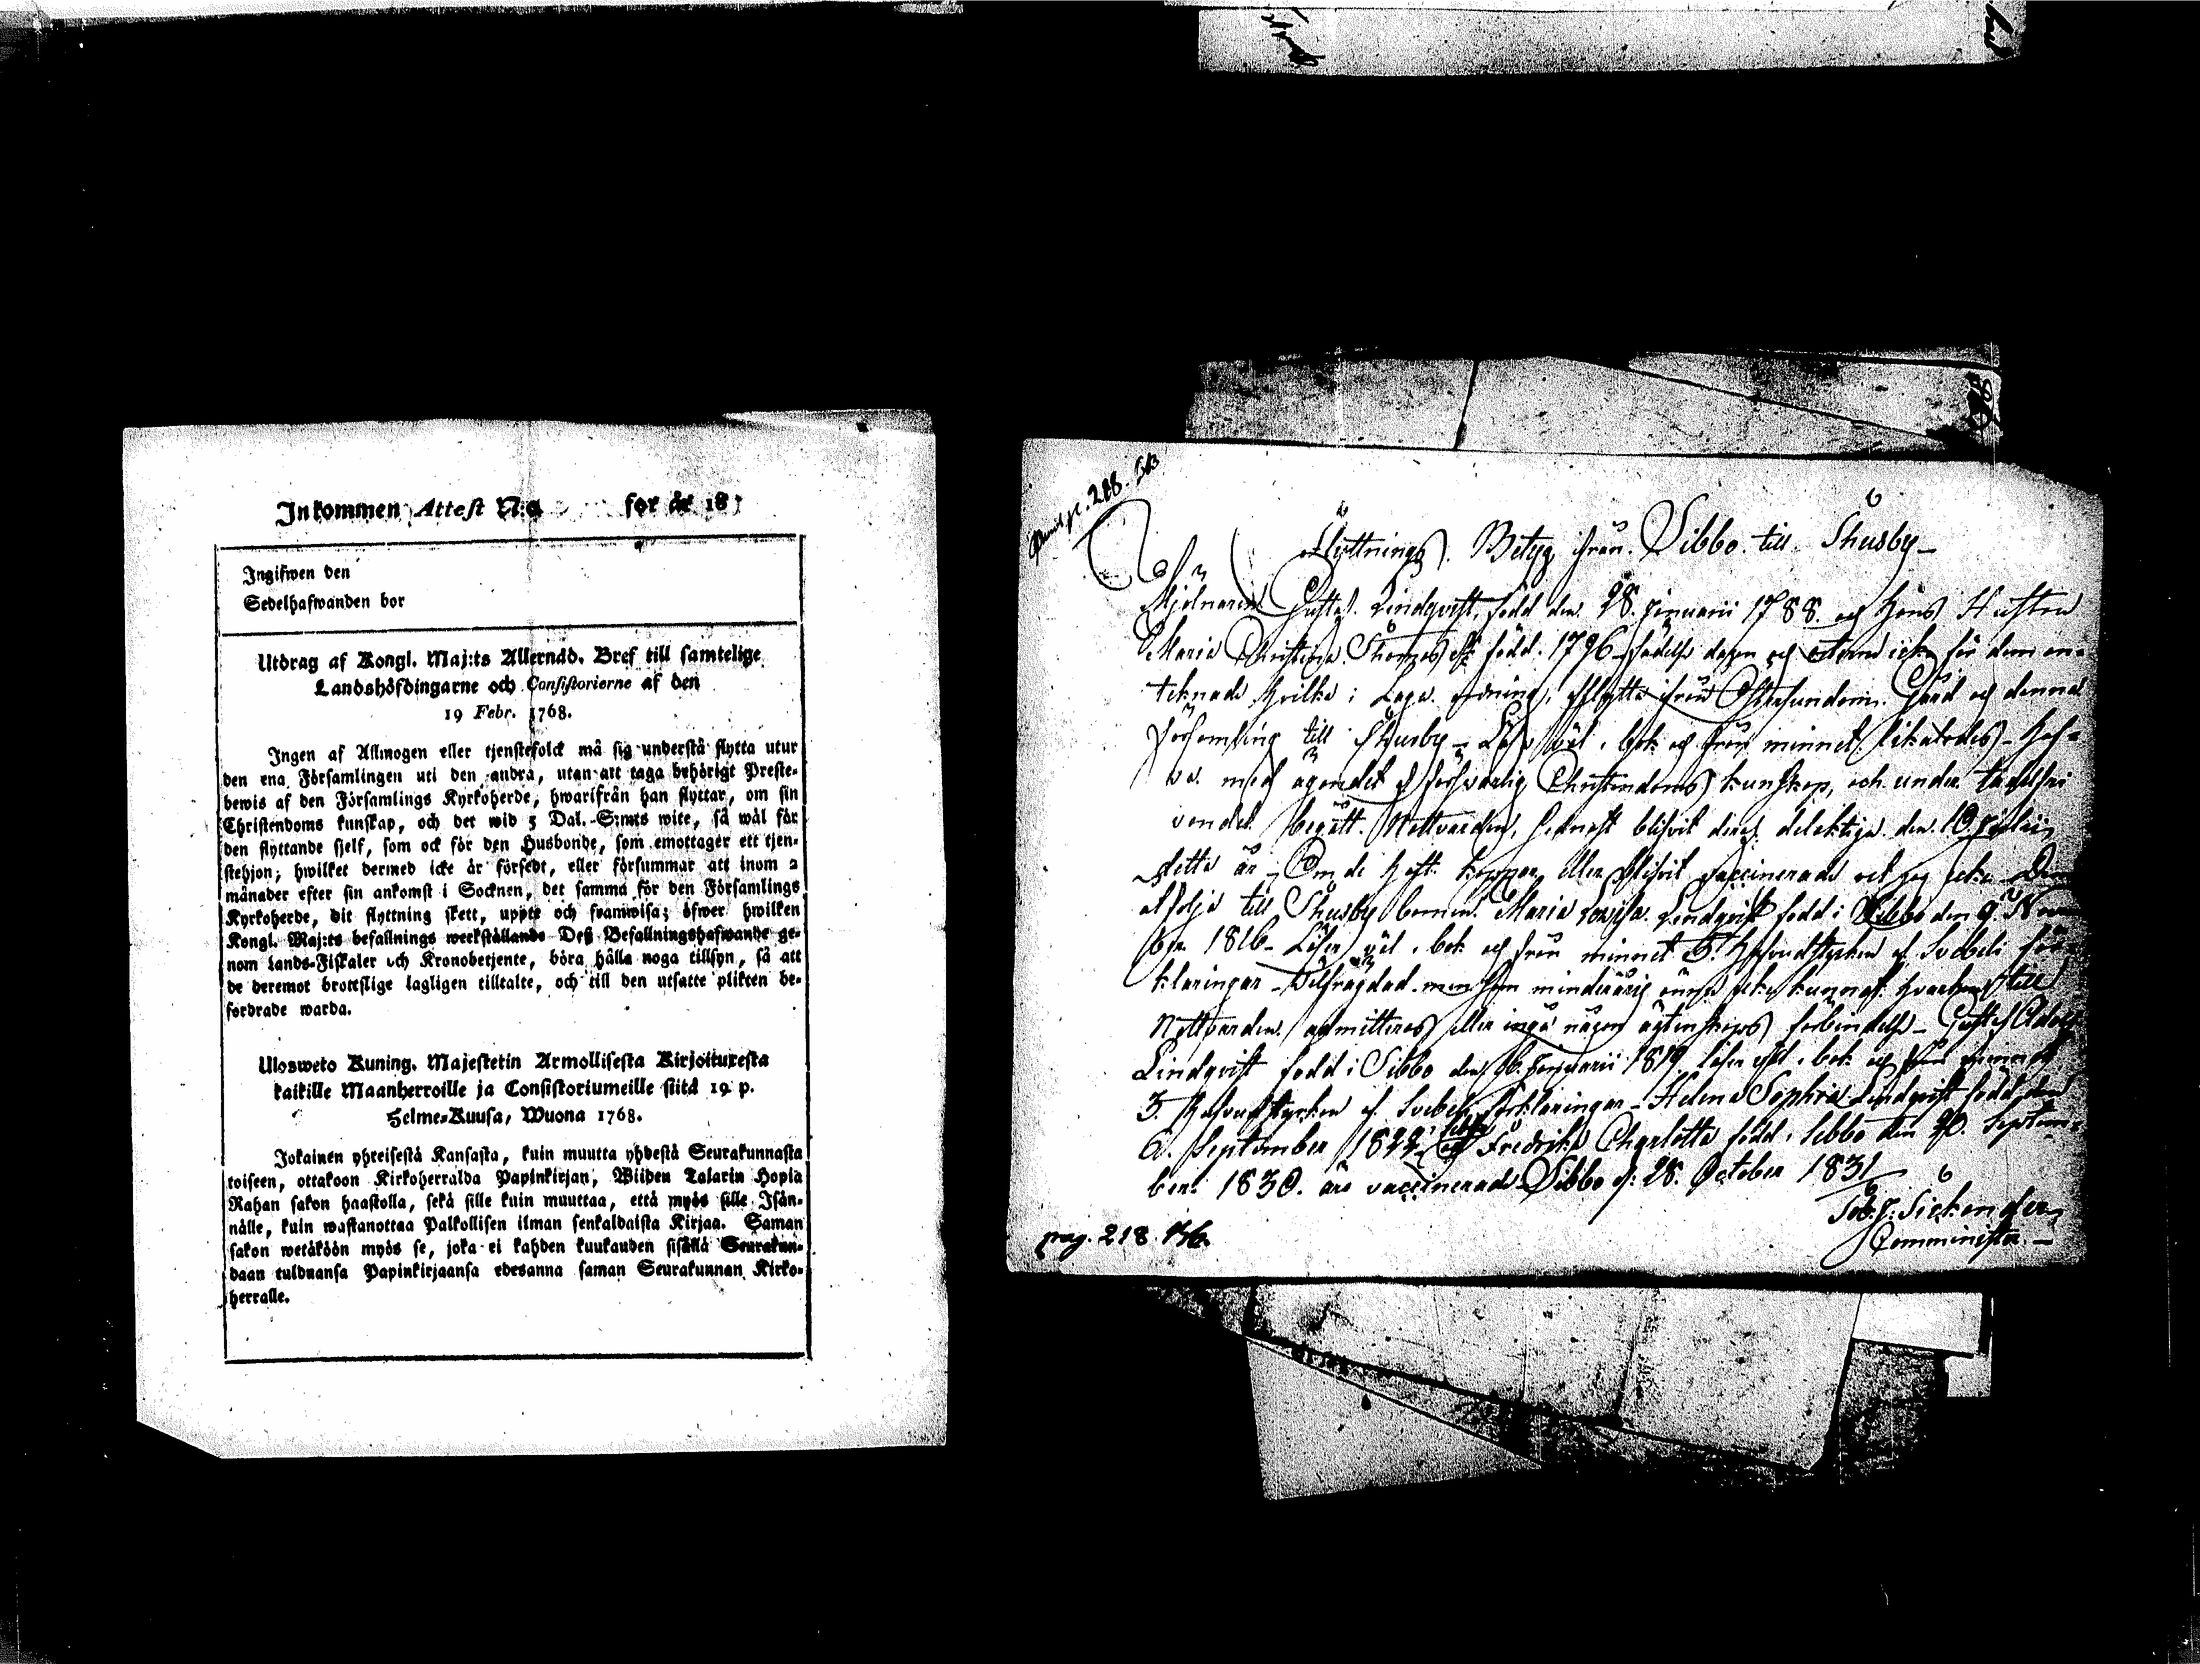 Inkommen Attest N:o for år 18
Ingifwen den
Sedelhafwanden bor
Utdrag af Kongl. Maj:ts Allernåd. Bref till samtelige
Landshöfdingarne och Consistorierne af den
19 Febr. 1768.
Ingen af Allmogen eller tjenstefolck må sig understå flytta utur
den ena Församlingen uti den andra, utan att taga behörigt Preste-
bewis af den Församlings Kyrkoherde, hwarifrån han flyttar, om sin
Christendoms kunskap, och det wid 5 Dal. S:mts wite, så wäl för
den flyttande sjelf, som ock för den Husbonde, som emottager ett tjen-
stehjon; hwilket dermed icke är försedt, eller försummar att inom 2
månader efter sin ankomst i Socknen, det samma för den Församlings
Kyrkoherde, dit flyttning skett, uppte och framwisa; öfwer hwilken
Kongl. Maj:ts befallnings werkställande Deß Befallningshafwande ge-
nom Lands-Fiskaler och Kronobetjente, böra hålla noga tillsyn, så att
de deremot brottslige lagligen tilltalte, och till den utsatte plikten be-
fordrade warda.
Ulosweto Kuning. Majestetin Armollisesta Kirjoituxesta
kaikille Maanherroille ja Consistoriumeille siitä 19 p.
Helme-Kuusa, Wuona 1768.
Jokainen yhteisestä Kansasta, kuin muutta yhdestä Seurakunnasta
toiseen, ottakoon Kirkoherralda Papinkirjan, Wiiden Talarin Hopia
Rahan sakon haastolla, sekä sille kuin muuttaa, että myös sille Isän-
nälle, kuin wastanottaa Palkollisen ilman senkaldaista Kirjaa. Saman
sakon wetäköön myös se, joka ei kahden kuukauden sisällä Seurakun-
daan tulduansa Papinkirjaansa edesanna saman Seurakunnan Kirko-
herralle.
pag. 218.
Flyttnings Betyg ifrån Sibbo till Thusby
Mjölnaren Gustaf Lindqvist, född den 28. Januarii 1788. och Hans Hustru
Maria Christina Thomasdr född 1796 födelse dagen och orten icke för dem an-
teknade hvilka i Laga ordning afflytta ifrån Östersundom Gård och denna
Församling till Thusby Läsa väl i bok och från minnet likaledes Haf-
va med ägandet af försvarlig Christendoms kunskap, och under tadelfri
vandel begått Nattvarden, senast blifvit deraf delaktige den 10 Julii
detta år Om de haft koppor eller blifvit vaccinerade vet jag icke Dem
åtfölja till Thusby barnen Maria Lovisa Lindqvist född i Sibbo den 9 Novem
ber 1816 Läser väl i bok och från minnet 5 Hufvudstycken af Svebeli för-
klaringar men som minderårig ännu icke kunnat hvarken till
Nattvarden admitteras eller ingå någon ägtenskaps förbindelse Gustaf Adolf
Lindqvist född i Sibbo den 16. Januarii 1819 läser väl i bok och från minnet
3. Hufvudstycken af Svebeli förklaringar Helena Sophia Lindqvist född den
6. September 1822 i Sibbo och Fredrika Charlotta född i Sibbo den 20. Septem-
ber 1830. äro vaccinerade Sibbo d: 28. October 1831
Sickender
Comminister
pag. 218.